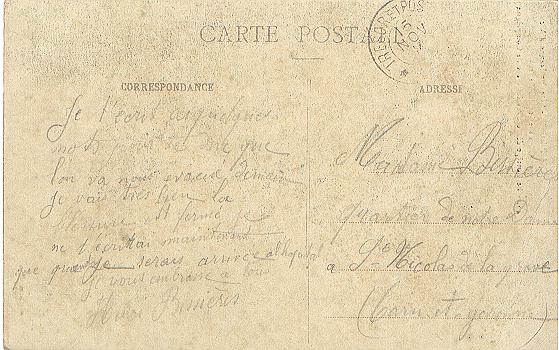 CARTE POSTALE
TRESOR ET POS
15
NOV
CORRESPONDANCE
ADRESSE
Je t'écrit ces quelques
mots pour te dire que
l'on va nous évacué demain
Je vais très bien la
blessure est fermé je
ne t'écritai maintenant
que quand je serais arrivée a l'hopital
Je vous embrasse a tous
Henri Bessières
Madame Bessières
quartier de notre Dame
a St Nicolas de la grave
(Tarn et garonne)